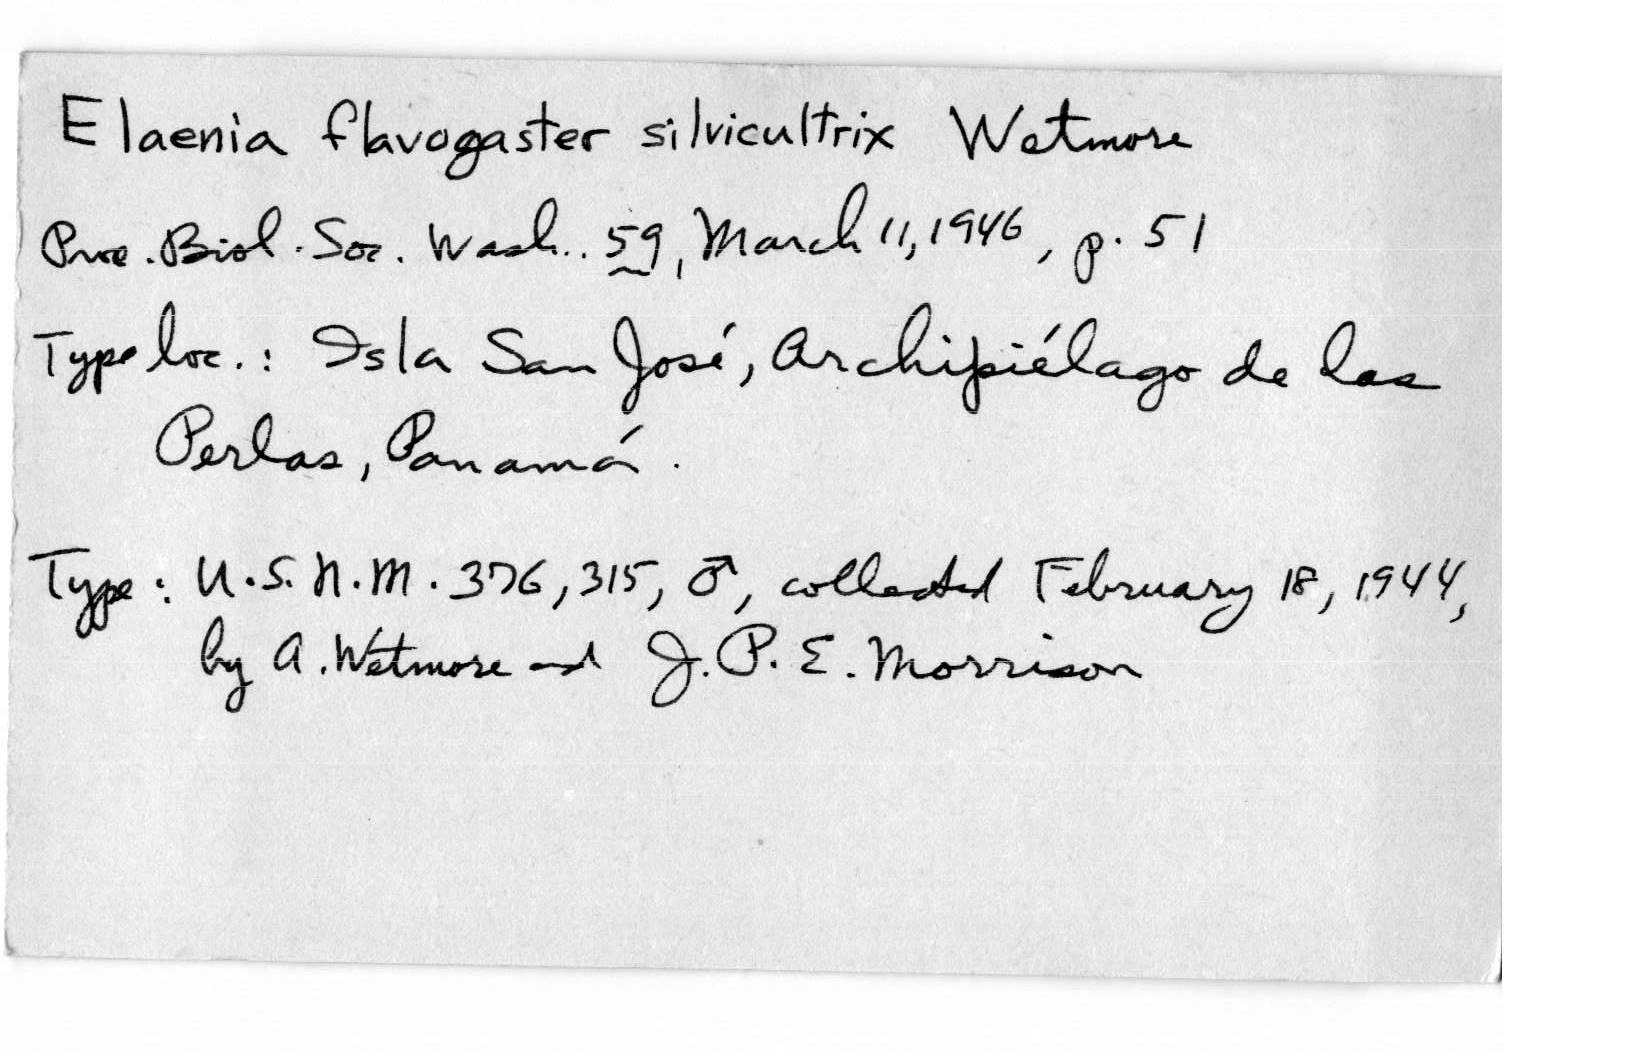 Elaenia flavogaster silvicultrix Wetmore
Proc. Biol. Soc. Wash.. 59, March 11, 1946, p. 51
Type loc.: Isla San José, Archipiélago de las
Perlas, Panamá.
Type: U.S.N.M. 376,315, ♂, collected February 18, 1944,
by A. Wetmore and J. P. E. Morrison